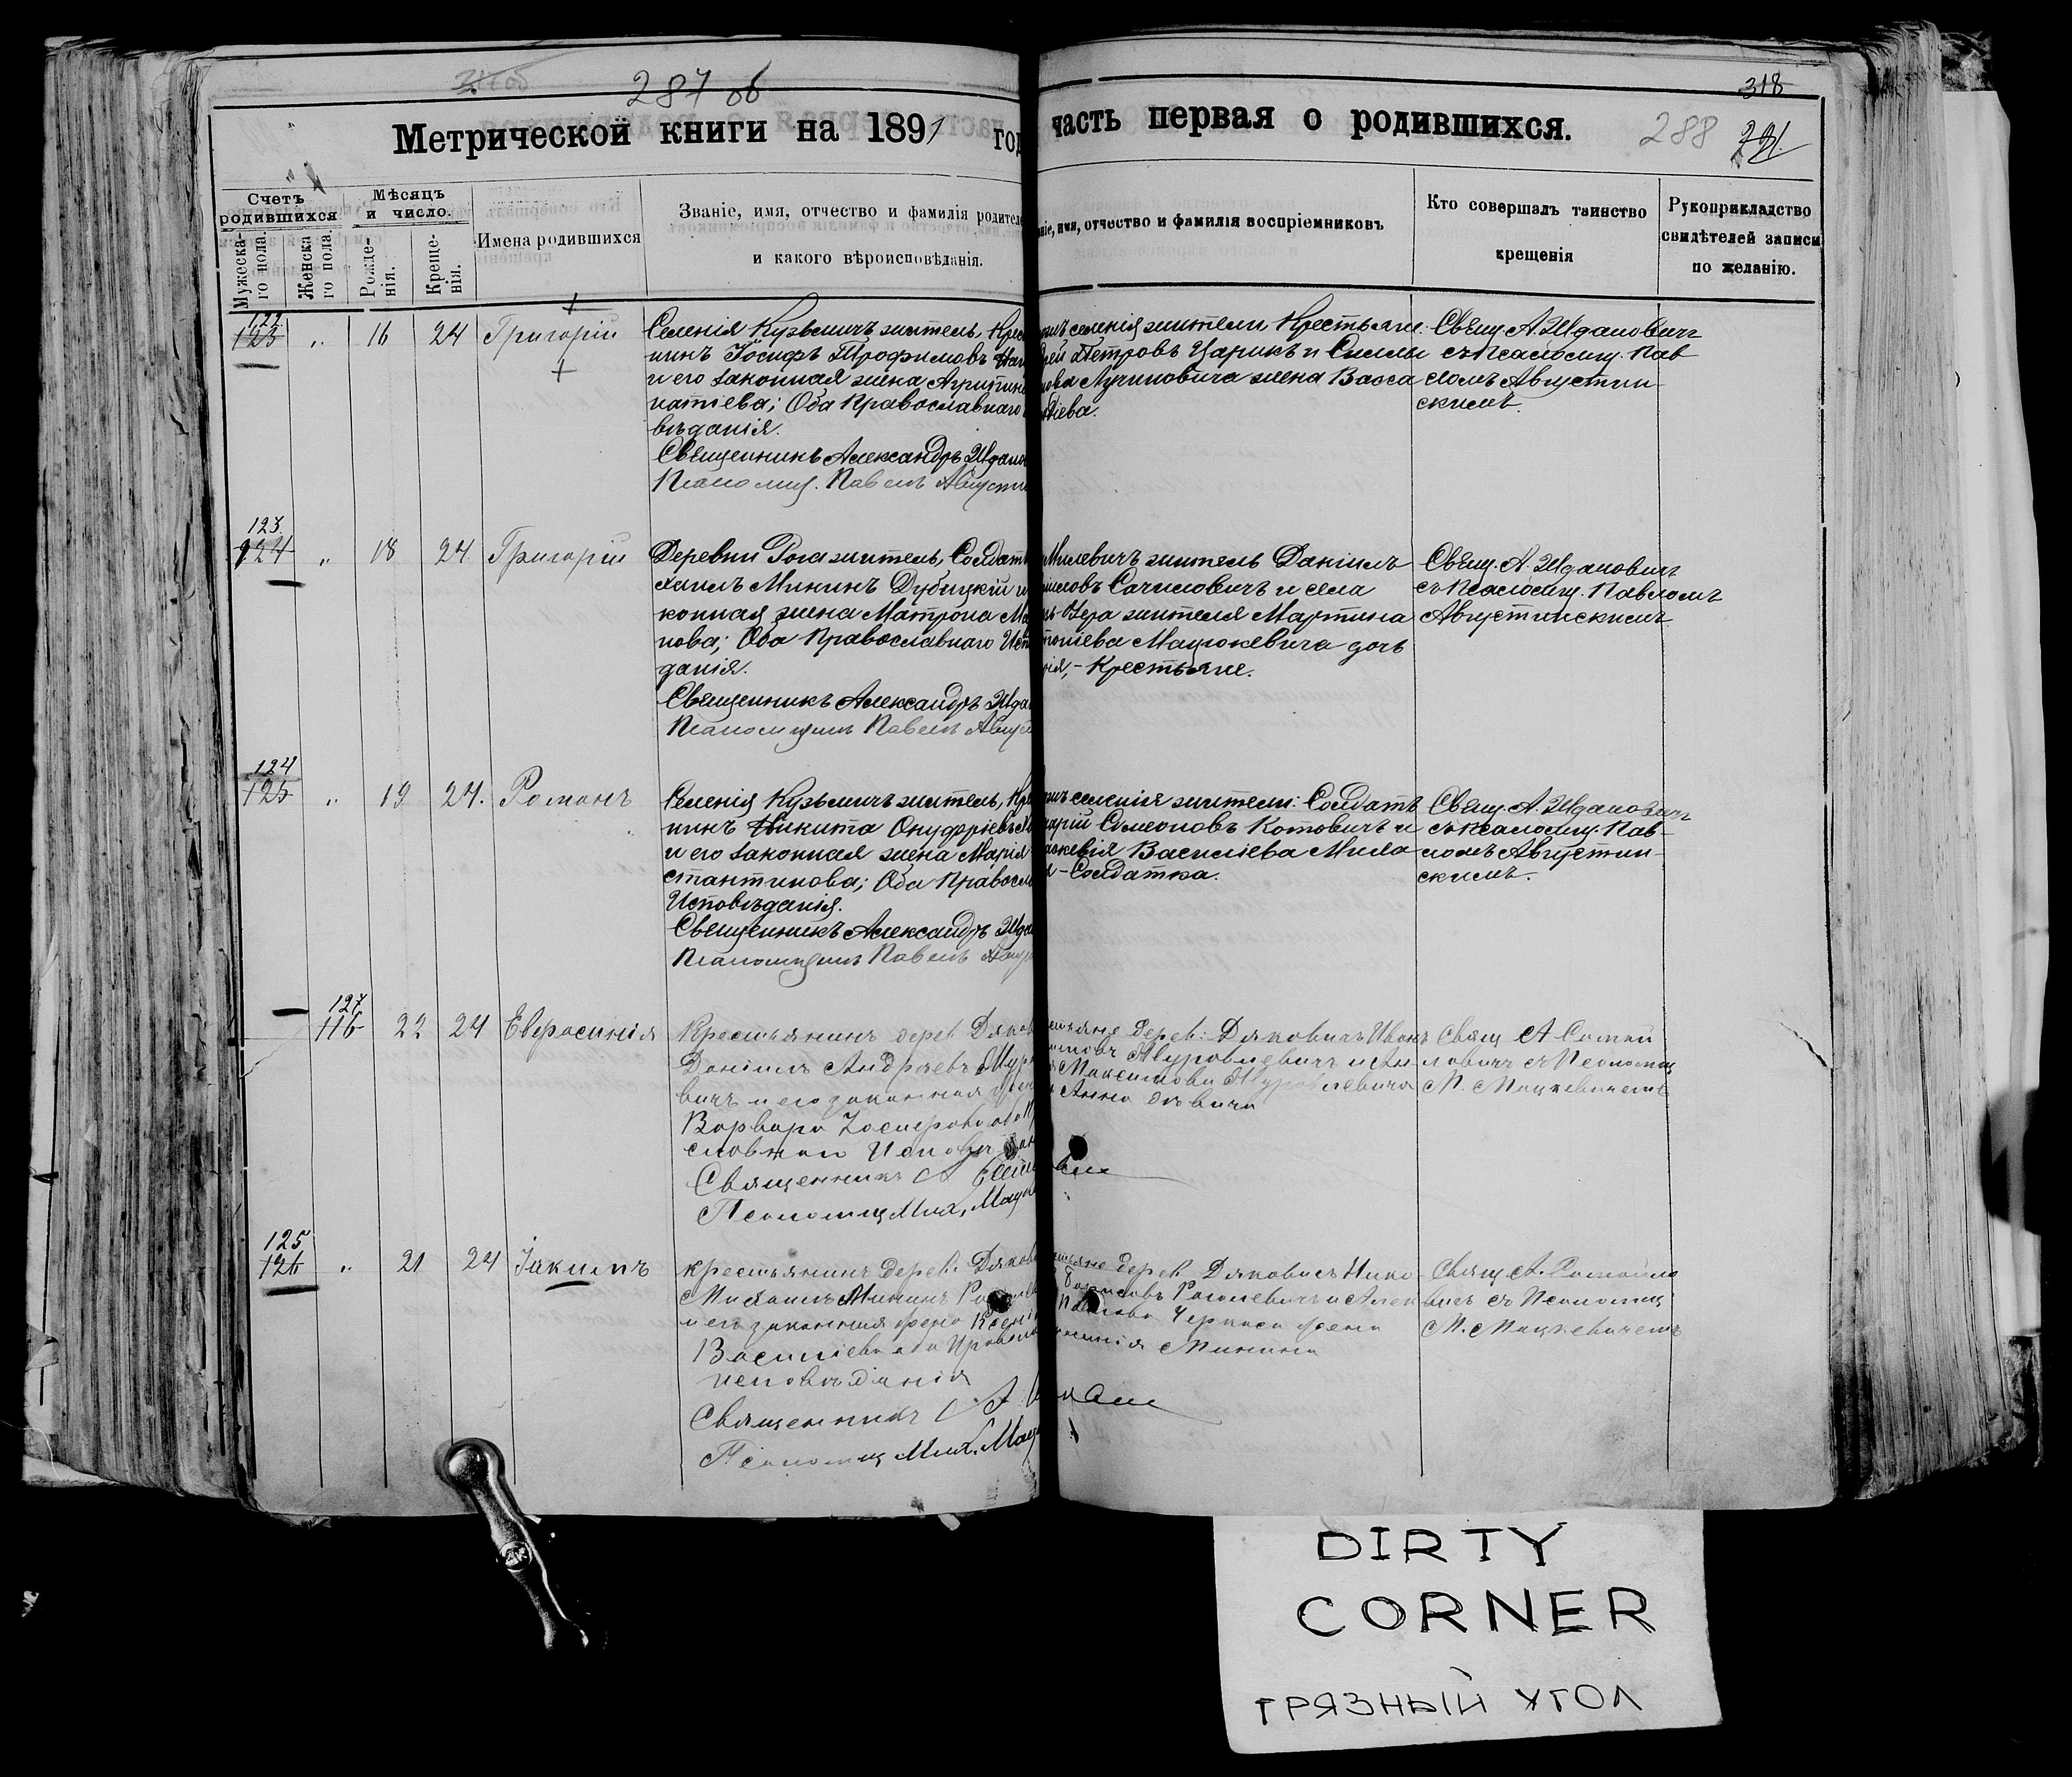 287 об
318
Метрической книги на 1891 год часть первая о родившихся.
288
Счетъ родившихся
Мужеска-го пола.
Женска го пола.
Мѣсяцъ и число.
Рожде-нія.
Креще-нія.
Имена родившихся
Званіе, имя, отчество и фамилія родителе
и какого вѣроисповѣданія.
ніе, имя, отчество и фамилія воспріемниковъ
Кто совершалъ таинство
крещенія
Рукоприкладство
свидѣтелей записи
по желанію.
122
123 " 16 24 Григорій
Селенія Кузьмичъ житель, Крес
нинъ Іосифъ Трофимовъ
и его законная жена Агрипин
натіева; Оба Православнаго
вѣданія.
Священникъ Александръ Ждано
Псаломщ. Павелъ Августи
селенія жители Крестьяне:
Петровъ Царикъ и Силы
Лучиновича жена Васса
Свящ. А. Ждановичъ
съ Псаломщ. Пав
ломъ Августин
скимъ.
123
124 " 18 24 Григорій
Деревни Рога житель, Солдат
хаилъ Мининъ Дубицкій и
конная жена Матрона Ма
нова; Оба Православнаго Исп
данія.
Священникъ Александръ Жда
Псаломщикъ Павелъ Авгус
Милевичъ житель Даніилъ
Сачиловичъ и села
Озера жителя Мартина
Мацюкевича дочь
нія, - Крестьяне.
Свящ. А. Ждановичъ
съ Псаломщ. Павломъ
Августинскимъ.
124
125 " 19 24. Романъ
Селенія Кузьмичъ житель, Кре
нинъ Никита Онуфріевъ
и его законная жена Марія
стантинова; Оба Правосл
Исповѣданія.
Священникъ Александръ Жда
Псаломщикъ Павелъ Авгу
селенія жители: Солдатъ
арій Симеоновъ Котовичъ и
аскевія Василіева Мила
- Солдатка.
Свящ. А. Ждановичъ
съ Псаломщ. Пав-
ломъ Августин-
скимъ.
127
116 22 24 Евфросинія
Крестьянинъ дерев. Дяков
Даніилъ Андреевъ Мур
вичъ и его законная жен
Варвара
Священникъ А
Псаломщ Мих. Мацк
стьяне дерев: Дяковичъ Иванъ
Муравлевичъ и Ан
Максимова Муравлевича
Анна дѣвица
Свящ А Самой
ловичъ съ Псаломщ
М. Мацкевичемъ
125
126 " 21 24 Іакимъ
крестьянинъ дерев. Дяков
Михаилъ Мининъ
и его законная жена Ксені
Василіева оба Правосла
исповѣданія
Священникъ А
Псаломщ Мих. Мацк
стьяне дерев. Дяковичъ Нико
Борисовъ Раголевичъ и Алек
Павлова Черкаса жена
Минина
Свящ А. Самойло
вичъ съ Псаломщ
М. Мацкевичемъ
DIRTY
CORNER
ГРЯЗНЫЙ УГОЛ